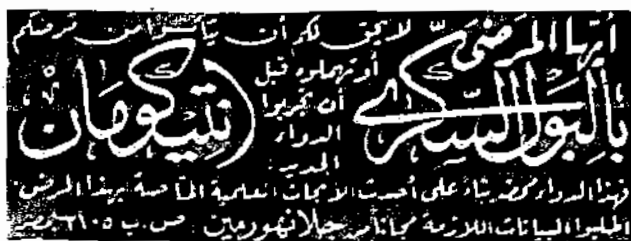 أيها المرضى
بالبول السكرى
لا يحق لكم أن تيأسوا من مرضكم
أو تهملوه قبل
أن تجربوا
الدواء
الجديد
(انتيكومان)
فهذا الدواء محضر بناء على أحدث الأبحاث العلمية الخاصة بهذا المرض
اطلبوا البيانات اللازمة مجانا من جلانهورمين ص.ب ٦١٠٥ مصر